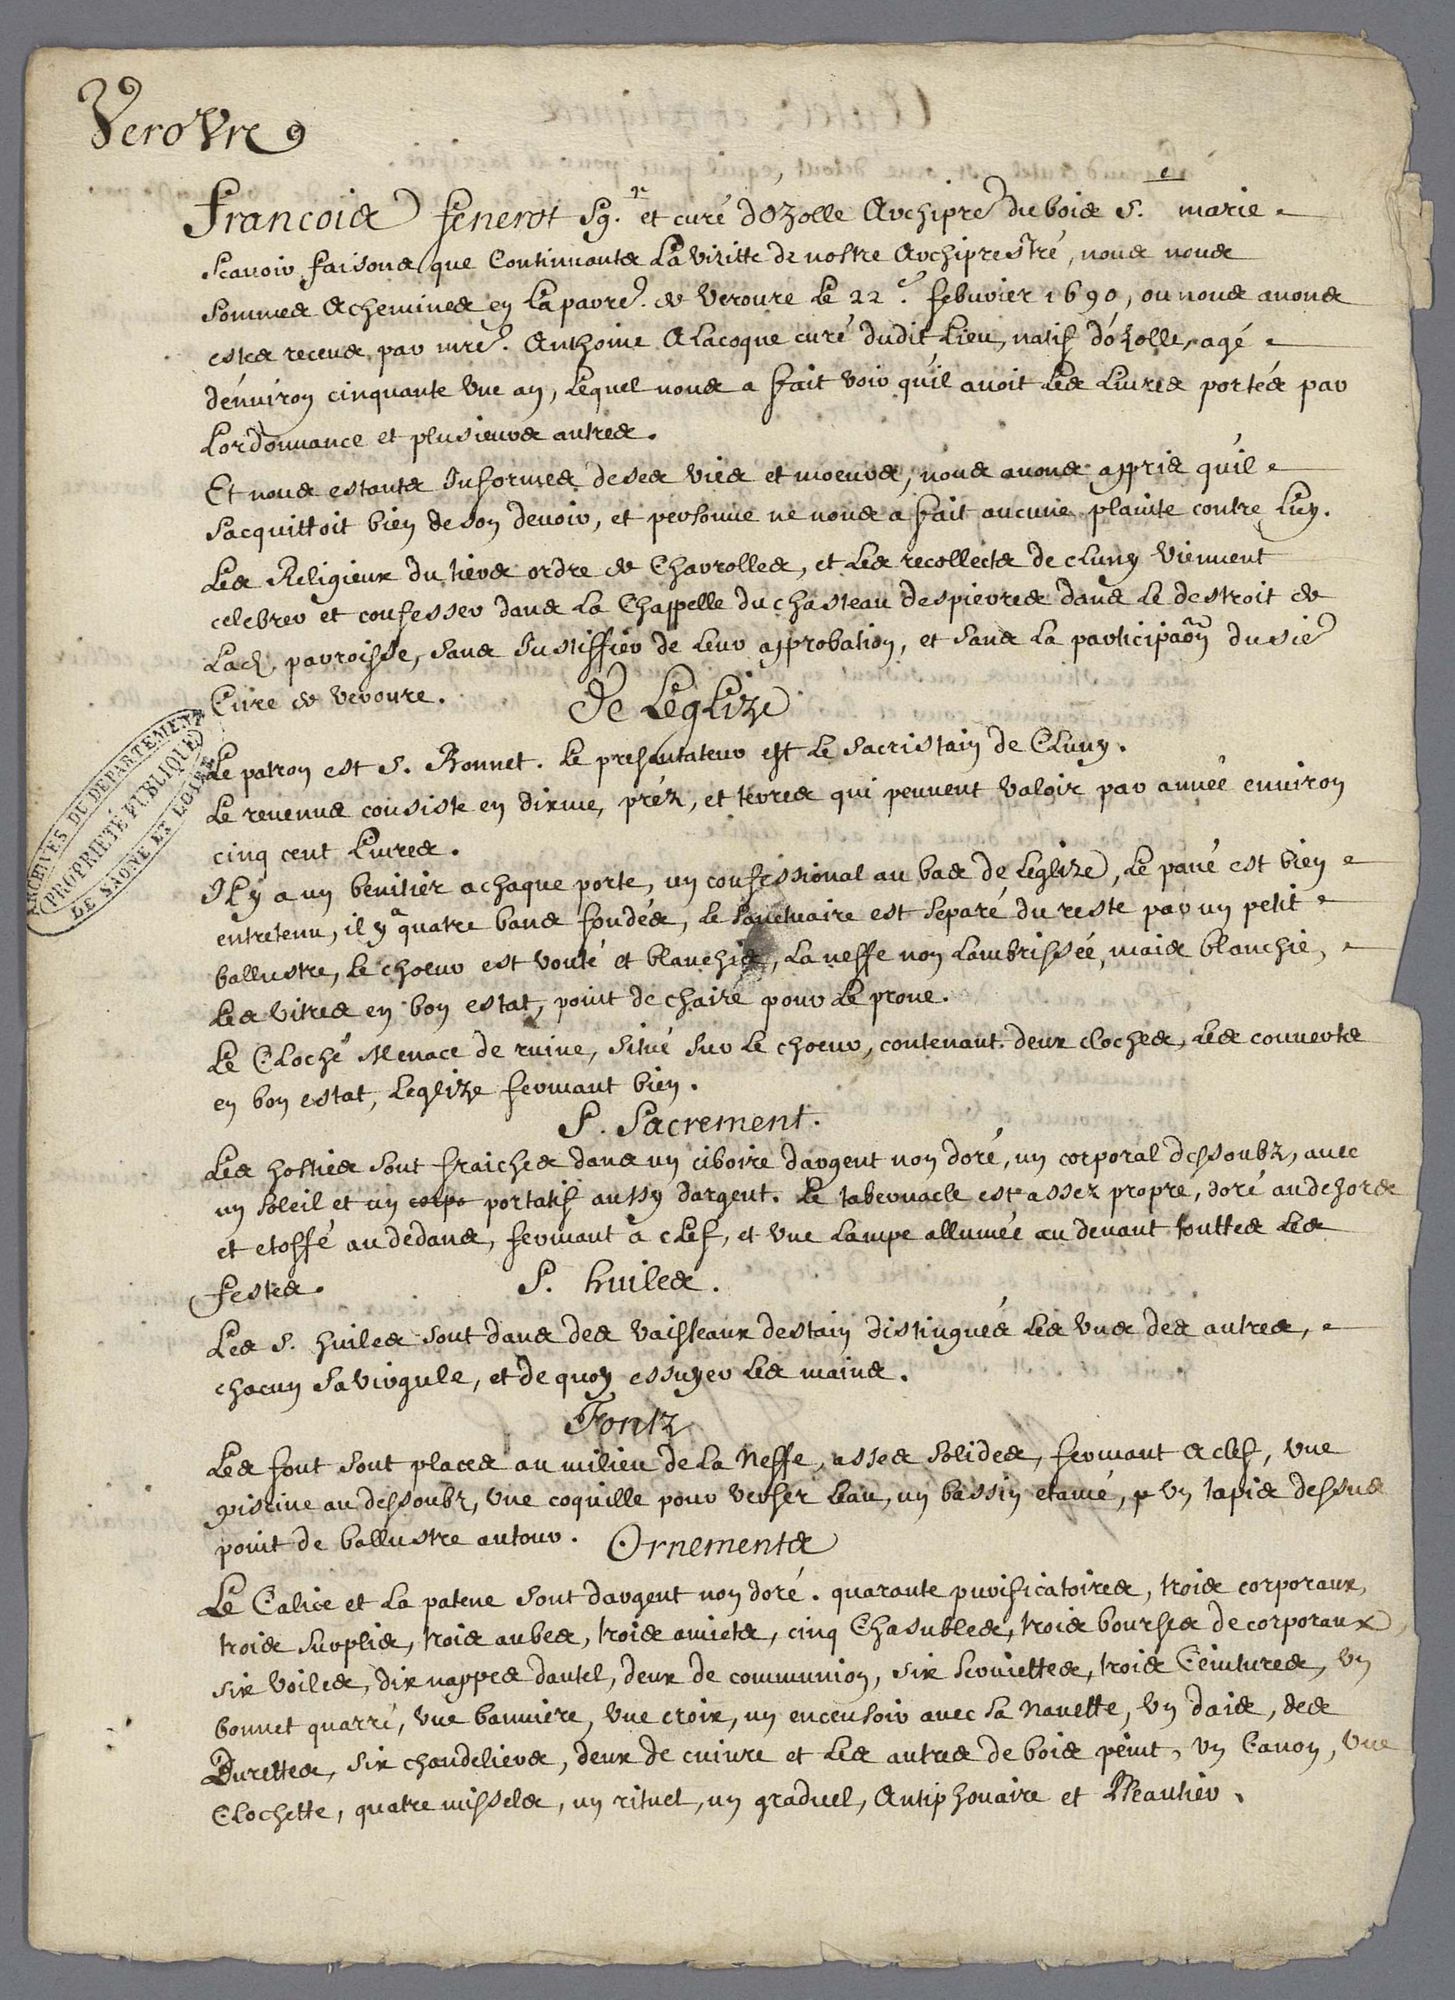 Verovre
Francois fenerot Sgr. et curé dOzolle Archipre du bois Ste. marie
scavoir faisons que Continuants La Visitte de nostre Archiprestré, nous nous
sommes Achemines en La parre. de Veroure Le 22e. febuvier 1690, ou nous auons
estes receus par mre. Anthoine Alacoque curé dudit Lieu, natif dózolle, agé
dénuiron cinquante Vne an, Lequel nous a fait voir quíl auoit Les Liures portés par
Lordonnance et plusieurs autres.
Et nous estants Informes de ses vies et moeurs, nous auons appris quíl
sacquittoit bien de son deuoir, et personne ne nous a fait aucune plainte contre Luy.
Les Religieux du tiers ordre de Charolles, et Les recollects de cluny Viennent
celebrer et confesser dans La Chappelle du chasteau despierres dans Le destroit de
Lad. parroisse, sans Justiffier de Leur approbation, et sans La participaôn du sie
Cure de veroure.
De LégLize
Le patron est S. Bonnet. Le presentateur est Le sacristain de Cluny.
Le reuenus consiste en dixme, préz, et terres qui peuuent Valoir par année enuiron
cinq cent Liures.
ILy a un benitier a chaque porte, un confessional au bas de Leglize, Le paué est bien
entretenu, il y a quatre bans fondés, Le sanctuaire est separé du reste par un petit
ballustre, Le choeur est vouté et blanchis, La neffe non Lambrissée, mais blanchie,
Les vitres en bon estat, point de chairé pour Le prone.
Le CLoché Menace de ruine, situé sur Le choeur, contenant deux cloches, Les couuerts
en bon estat, Leglize fermant bien.
S. Sacrement.
Les hosties sont fraiches dans un ciboire dargent non doré, un corporal dessoubz, auec
un soleil et un corpo portatif aussy dargent. Le tabernacle est assez propré, doré au dehors
et etoffé au dedans, fermant à cLef, et vne Lampe allumée au deuant touttes Les
festes.
S. huiles.
Les S. huiles sont dans des Vaisseaux destain distingués Les Vns des autres,
chacun sa virgule, et de quoy essuyer Les mains.
Fontz
Les font sont places au milieu de La Neffe, asses solides, fermant a clef, vne
piscine au dessoubz, vne coquille pour verser Leau, un bassin etamé, p vn tapis dessus
point de ballustre autour.
Ornements
Le Calice et La patene sont dargent non doré. quarante purificatoires, trois corporaux,
trois surplis, trois aubes, trois amicts, cinq Chasubles, trois bourses de corporaux,
six voiles, dix nappes dautel, deux de communion, six seruiettes, trois Ceintures, vn
bonnet quarré, vne banniere, vne croix, un encensoir auec sa Nauette, vn dais, des
Burettes, six chandeliers, deux de cuivre et Les autres de bois peint, vn Canon, vne
CLochette, quatre missels, un rituel, un graduel, Antiphonaire et Pseautier.
ARCHIVES DU DÉPARTEMENT
PROPRIÉTÉ PUBLIQUE
DE SAÔNE ET LOIRE